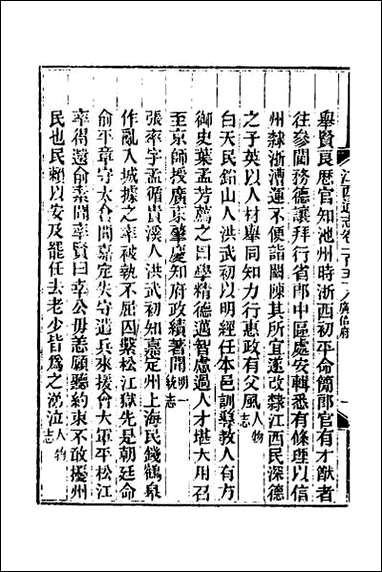 舉賢良歷官知池州時浙西初平命簡郡官有才猷者
往參閫務德讓拜行省郎中區處安輯悉有條理以信
州隸浙漕運不便詣闕陳其所宜遂改隸江西民深德
之子英以人材舉同知力行惠政有父風人物志
白天民鉛山人洪武初以明經任本邑訓導教人有方
御史葉孟芳薦之曰學精德邁智慮過人才堪大用召
至京師授廣東肇慶知府政績著聞明一統志
張率字孟循貴溪人洪武初知嘉定州上海民錢鶴皋
作亂入城據之率被執不屈囚繫松江獄先是朝廷命
俞平章守太倉聞嘉定失守遣兵來援會大軍平松江
率得還俞素聞率賢曰幸公毋恙願聽約束不敢擾州
民也民賴以安及罷任去老少皆為之涕泣人物志
江西通志卷一百五十八廣信府
一